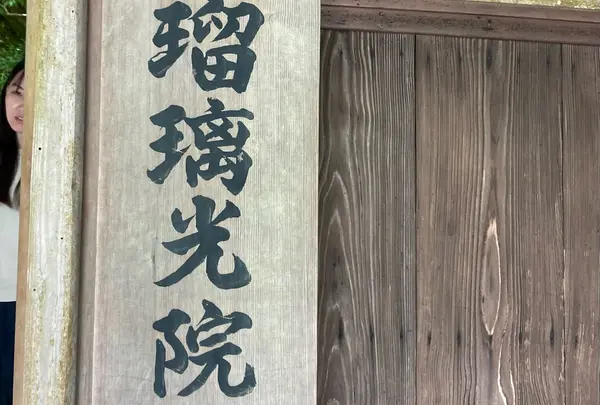 瑠璃光院